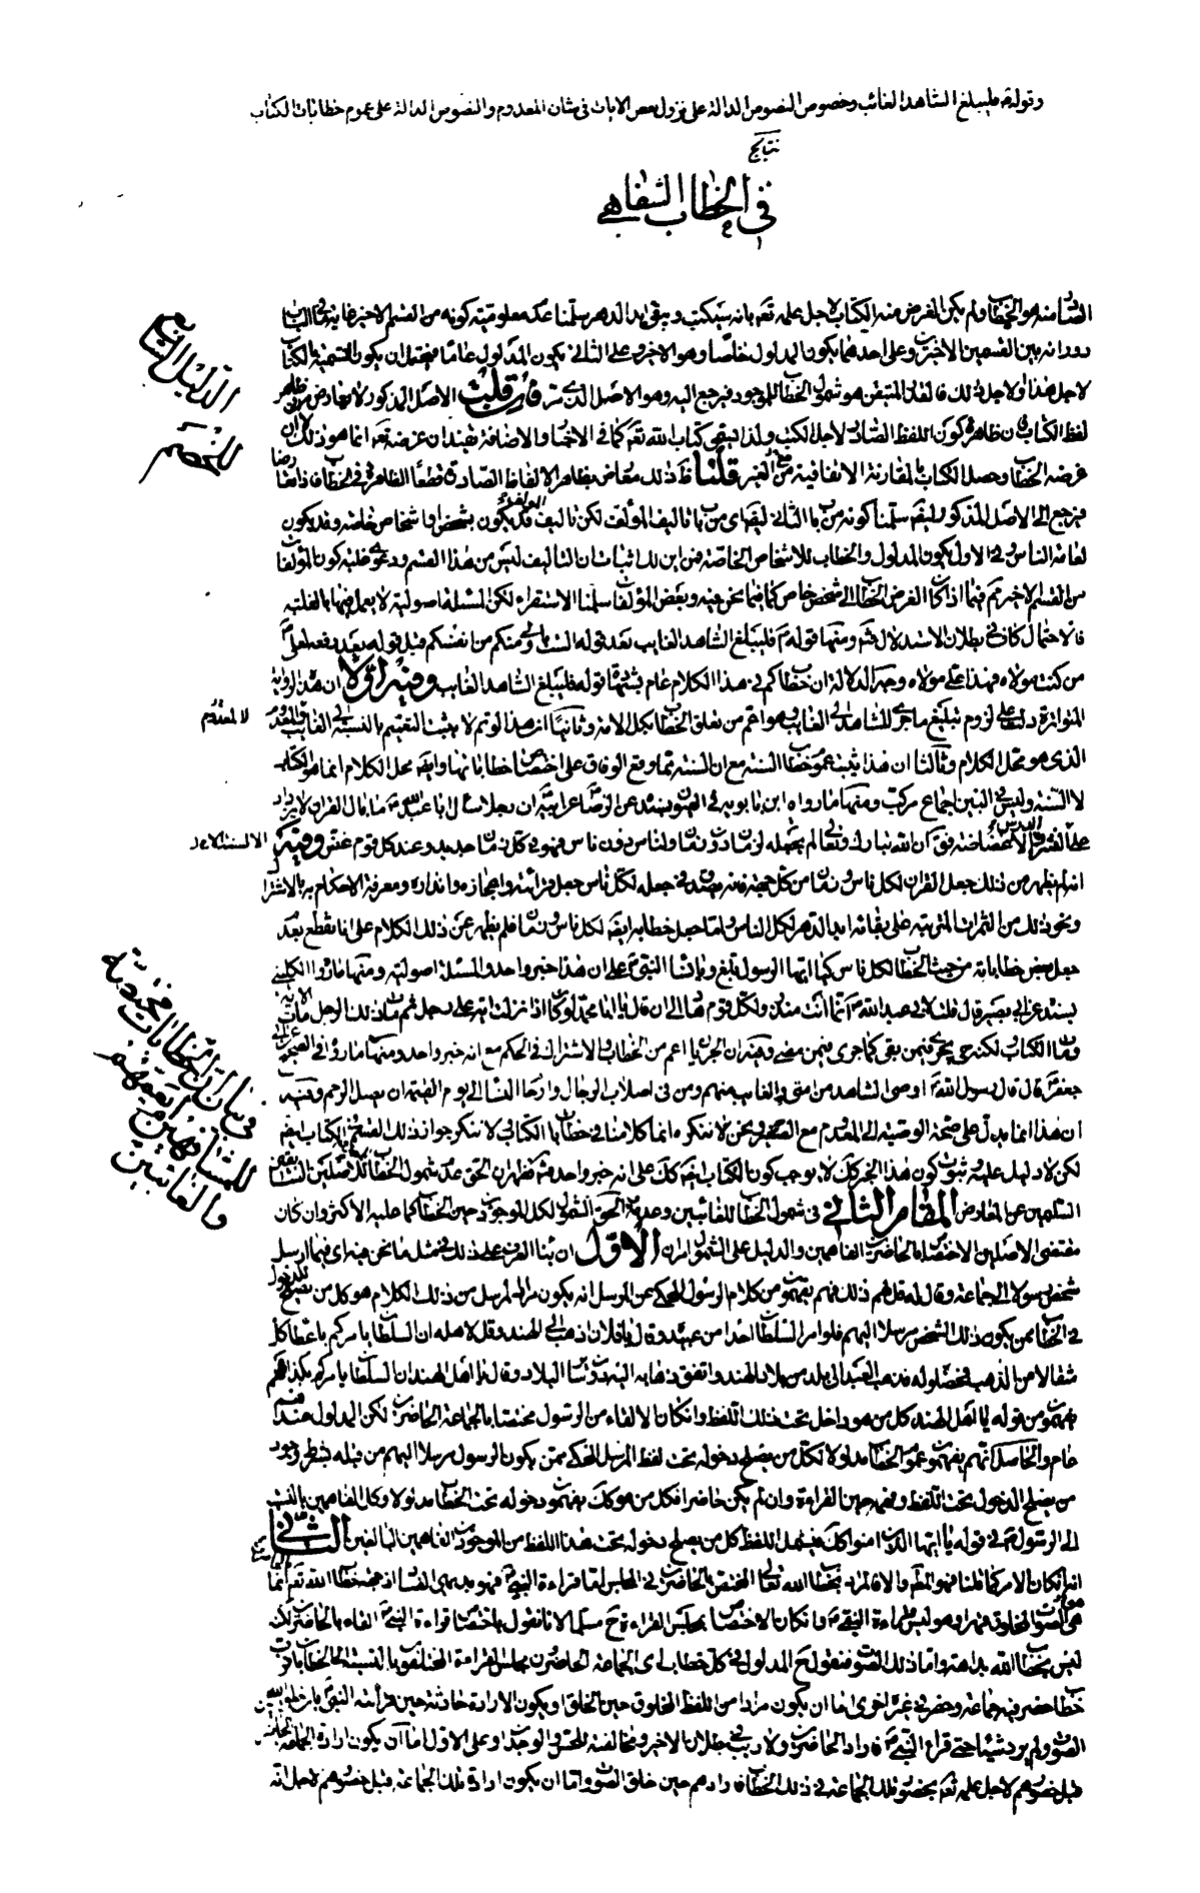 وقوله فليبلغ الشاهد الغائب وخصوص النصوص الدالة على نزول بعض الايات فى شان المعدوم والنصوص الدالة على عموم خطابات الكتاب
نتايج
فى الخطاب الشفاهى
هو الخطاب ولم يكن الغرض منه الكتاب لاجل علمه تعم بانه سيكتب ويبقى ابد الدهر سلمنا عدم معلومية كونه من القسم الاخير
دورانه بين القسمين الاخيرين وعلى احدهما يكون المدلول خاصا وهو الاخر وعلى الثانى يكون المدلول عاما فيحتمل ان يكون
الدليل السابع
للخصم
لاجل هذا او لاجل ذلك فالقدر المتيقن هو شمول الخطاب للموجود فيرجع اليه وهو الاصل الذى مر فان قلت الاصل المذكور لا يعارض
لفظ الكتاب فان ظاهره كون اللفظ الصادر لاجل الكتب ولذا يبقى كتاب الله تعم كما فى
غرضه الخطاب وحصل الكتاب بالمقارنة الاتفاقية من الغير قلنا ذلك معارض بظاهر الالفاظ الصادرة قطعا الظاهر فى الخطاب
فيرجع الى الاصل المذكور سلمنا كونه من باب الثانى اى من باب تاليف المؤلف لكن تاليف المؤلف قد يكون بشخص او اشخاص خاصة وقد يكون
لعامة الناس وفى الاول يكون المدلول والخطاب للاشخاص الخاصة فمن اين لك اثبات ان التاليف ليس من هذا القسم ودعوى غلبة كون المؤلفات
من القسم الاخير ثم فيما اذا كان الغرض الخطاب الى شخص خاص كما فيما نحن فيه وبعض المؤلفات سلمنا الاستقراء لكن المسئلة اصولية لا يعمل فيها بالغلبة
فالاحتمال كاف فى بطلان الاستدلال ومنها قوله فليبلغ الشاهد الغايب بعد قوله الست اولى منكم من انفسكم قبل قوله
من كنت مولاه فهذا على مولاه وجه الدلالة ان خطابكم فى هذا الكلام عام بشهادة قوله فليبلغ الشاهد الغايب وفيه اولا ان هذه الرواية
المتواترة دلت على لزوم تبليغ ماجرى للشاهد الى الغايب وهو اعم من تعلق الخطاب بكل الامة وثانيا ان هذا لو تم لا يثبت التعميم بالنسبة الى الغايب
لا المعدوم
الذى هو محل الكلام وثالثا ان هذا يثبت عموم خطاب السنة مع ان السنة مما وقع الوفاق على اختصاص خطاباتها وايضا محل الكلام انما هو الكتاب
لا السنة وليس فى البين اجماع مركب ومنها ما رواه ابن بابويه فى العيون بسنده عن الرضا عن ابيه ان رجلا سال ابا عبد الله ما بال القران لا يزداد
على النشر والدرس الا غضاضة فق ان الله تبارك وتعالى لم يجعله لزمان دون زمان ولناس دون ناس فهو فى كل زمان جديد وعند كل قوم غض وفيه
انه لم يظهر من ذلك جعل القران لكل ناس وزمان من كل جهة فانه يصدق فى جعله لكل ناس جعل قرائته واعجازه وانذاره ومعرفة الاحكام به بالاشتراك
ونحو ذلك من الثمرات المترتبة على بقائه ابد الدهر لكل الناس واما جعل خطابه ايضا لكل ناس وزمان فلم يظهر من ذلك الكلام على انا نقطع بعدم
جعل بعض خطاباته من حيث الخطاب لكل ناس كيا ايها الرسول بلغ ويا نساء النبى على ان هذا خبر واحد والمسئلة اصولية ومنها ما رواه الكلينى
بسنده عن ابى بصير قال قلت لابى عبد الله انما انت منذر ولكل قوم هاد الى ان قال يا ابا محمد لو كان اذا نزلت اية على رجل ثم مات ذلك الرجل ماتت الاية
ومات الكتاب ولكنه حى يجرى فيمن بقى كما جرى فيمن مضى وفيه ان الجريان اعم من الخطاب والاشتراك فى الحكم مع انه خبر واحد ومنها ما رواه
قال قال رسول الله اوصى الشاهد من امتى والغايب منهم ومن فى اصلاب الرجال وارحام النساء الى يوم القيمة ان يصل الرحم وفيه
فى بيان ان الخطابات مختصة
للمشافهين او تعمهم
والغائبين
ان هذا انما يدل على صحة الوصية الى المعدوم مع ونحن لا ننكره وانما كلامنا فى خطاب الكتاب لا ننكر جواز ذلك
لكن لا دليل عليه وثبوت كون هذا الخبر كك لا يوجب كون الكتاب ايضا كك على انه خبر واحد فظهر ان الحق عدم شمول الخطاب للاصلين
السليمين عن المعارض المقام الثانى فى شمول الخطاب للغائبين وعدمه الحق الشمول لكل الموجودين حين الخطاب كما عليه الاكثر وان كان
مقتضى الاصلين الاختصاص بالحاضرين الفاهمين والدليل على الشمول امران الاول ان بناء العرف على ذلك فى مثل ما نحن فيه اى فيما ارسل
شخص رسولا الى جماعة وقال له قل لهم ذلك فهم يفهمون من كلام الرسول المحكى عن المرسل انه يكون مراد المرسل من ذلك الكلام هو كل من يصلح للدخول
فى الخطاب ممن يكون ذلك الشخص مرسلا اليهم فلو امر السلطان احدا من عبيده وقال يا فلان اذهب الى الهند وقل لاهله ان السلطان يامركم باعطاء كل
مثقالا من الذهب فذهب العبد الى بلد من بلاد الهند واتفق ذهابه اليه دون ساير البلاد وقال يا اهل الهند ان السلطان يامركم بكذا فهم
يفهمون من قوله يا اهل الهند كل من هو داخل تحت ذلك اللفظ وان كان الالقاء من الرسول مختصا بالجماعة الحاضرين لكن المدلول عندهم
عام والحاصل انهم يفهمون عموم الخطاب مدلولا لكل من يصلح دخوله تحت لفظ المرسل المحكى ممن يكون الرسول مرسلا اليهم من قبله بشرط وجود
من يصلح الدخول تحت اللفظ وفهمه حين القراءة وان لم يكن حاضرا فكل من هو كك يفهمون دخوله تحت الخطاب مدلولا وكل الفاهمين بالنسبة
الى الرسول فى قوله يا ايها الذين امنوا كك فيشمل اللفظ كل من يصلح دخوله تحت هذا اللفظ من الموجودين الفاهمين البالغين الثانى
انه ان كان الامر كما قلنا فهو المط والا فالمراد بخطاب الله تعالى المختص بالحاضرين فى المجلس اما قراءة النبى فهو بديهى الفساد اذ خطاب الله تعم انما
هى الصوت المخلوق وهو ليس قراءة النبى وان كان الاختصاص بمجلس القراءة ح مسلما الا انا نقول باختصاص قراءة النبى القاءه بالحاضرين لكنه
ليس بخطاب الله بداهة واما ذلك الصوت فنقول ح المدلول فى كل خطاب اى الجماعة الحاضرون بمجلس القراءة المختلفون بالنسبة الى الخطابات
خطاب حضر فيه جماعة وحضر فى غيره اخرى اما ان يكون مرادا من اللفظ المخلوق حين الخلق او يكون الارادة حادثة حين قرائة النبى
الصوت ولم يرد شيئا حتى قراء النبى فاراد الحاضرين ولا ريب فى بطلان الاخير ومخالفته للحس والوجدان وعلى الاول اما ان يكون ارادة الجماعة
قبل حضورهم لاجل علمه تعم بحضور تلك الجماعة فى ذلك الخطاب فارادهم حين خلق الصوت واما ان يكون ارادة تلك الجماعة قبل حضورهم لاجل انه